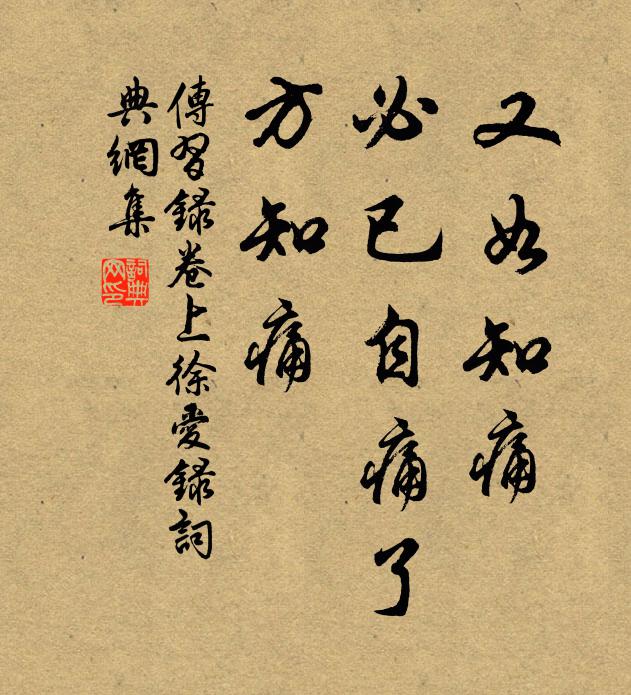 又如知痛
必已自痛了
方知痛
傳習録卷上徐愛録詞
典網集
詞典
网印